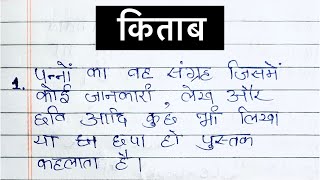 किताब
1. पन्नों का वह संग्रह जिसमें
कोई जानकारी, लेख और
छवि आदि कुछ भी लिखा
या छपा हो पुस्तक
कहलाता है।